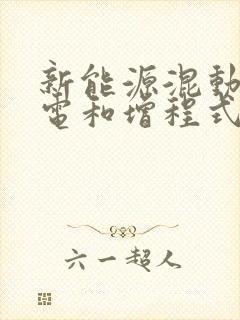 新能源混動
電和增程式
六一超人